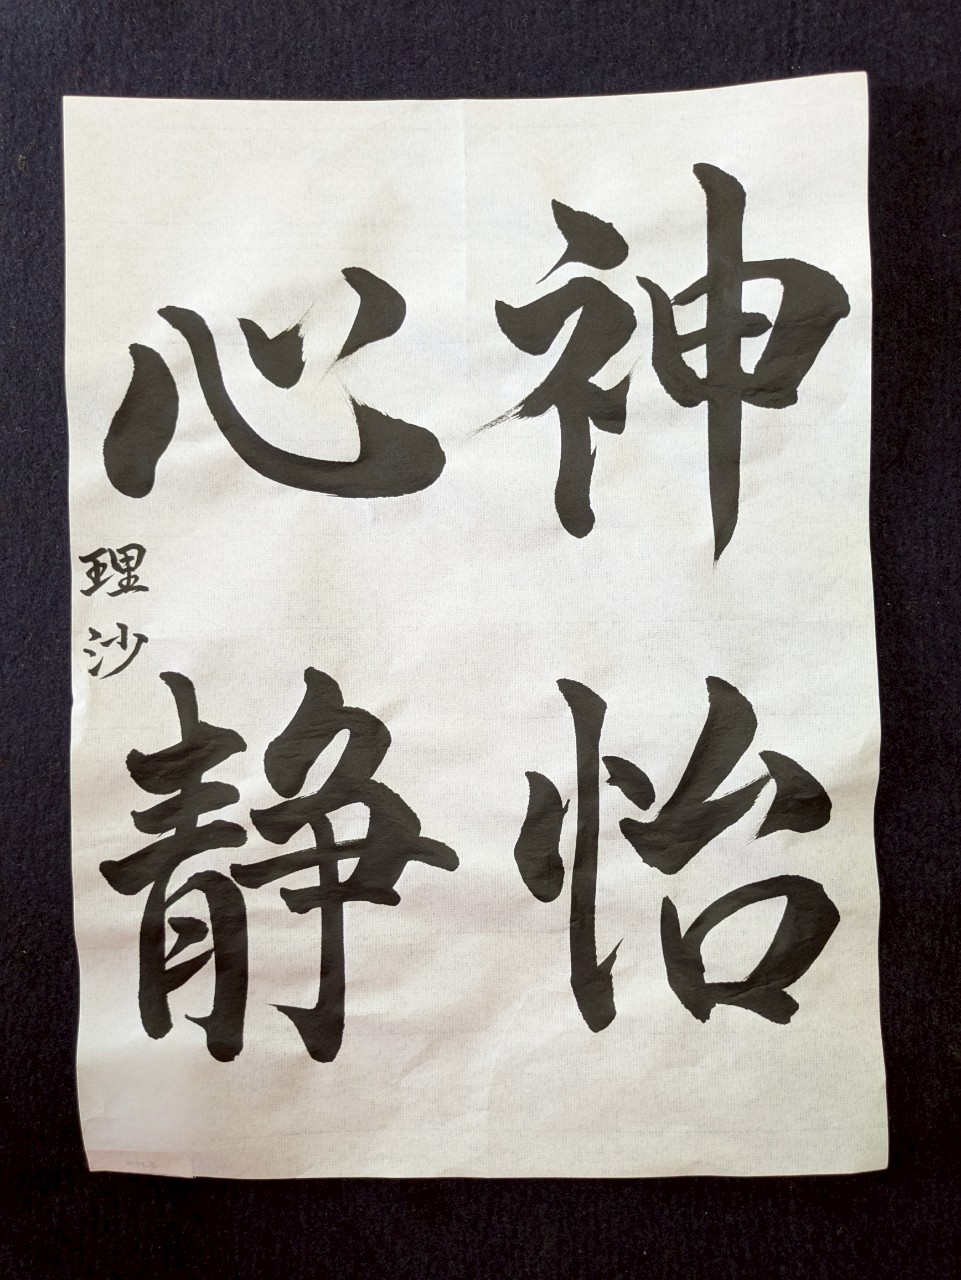 神怡
心静
理沙